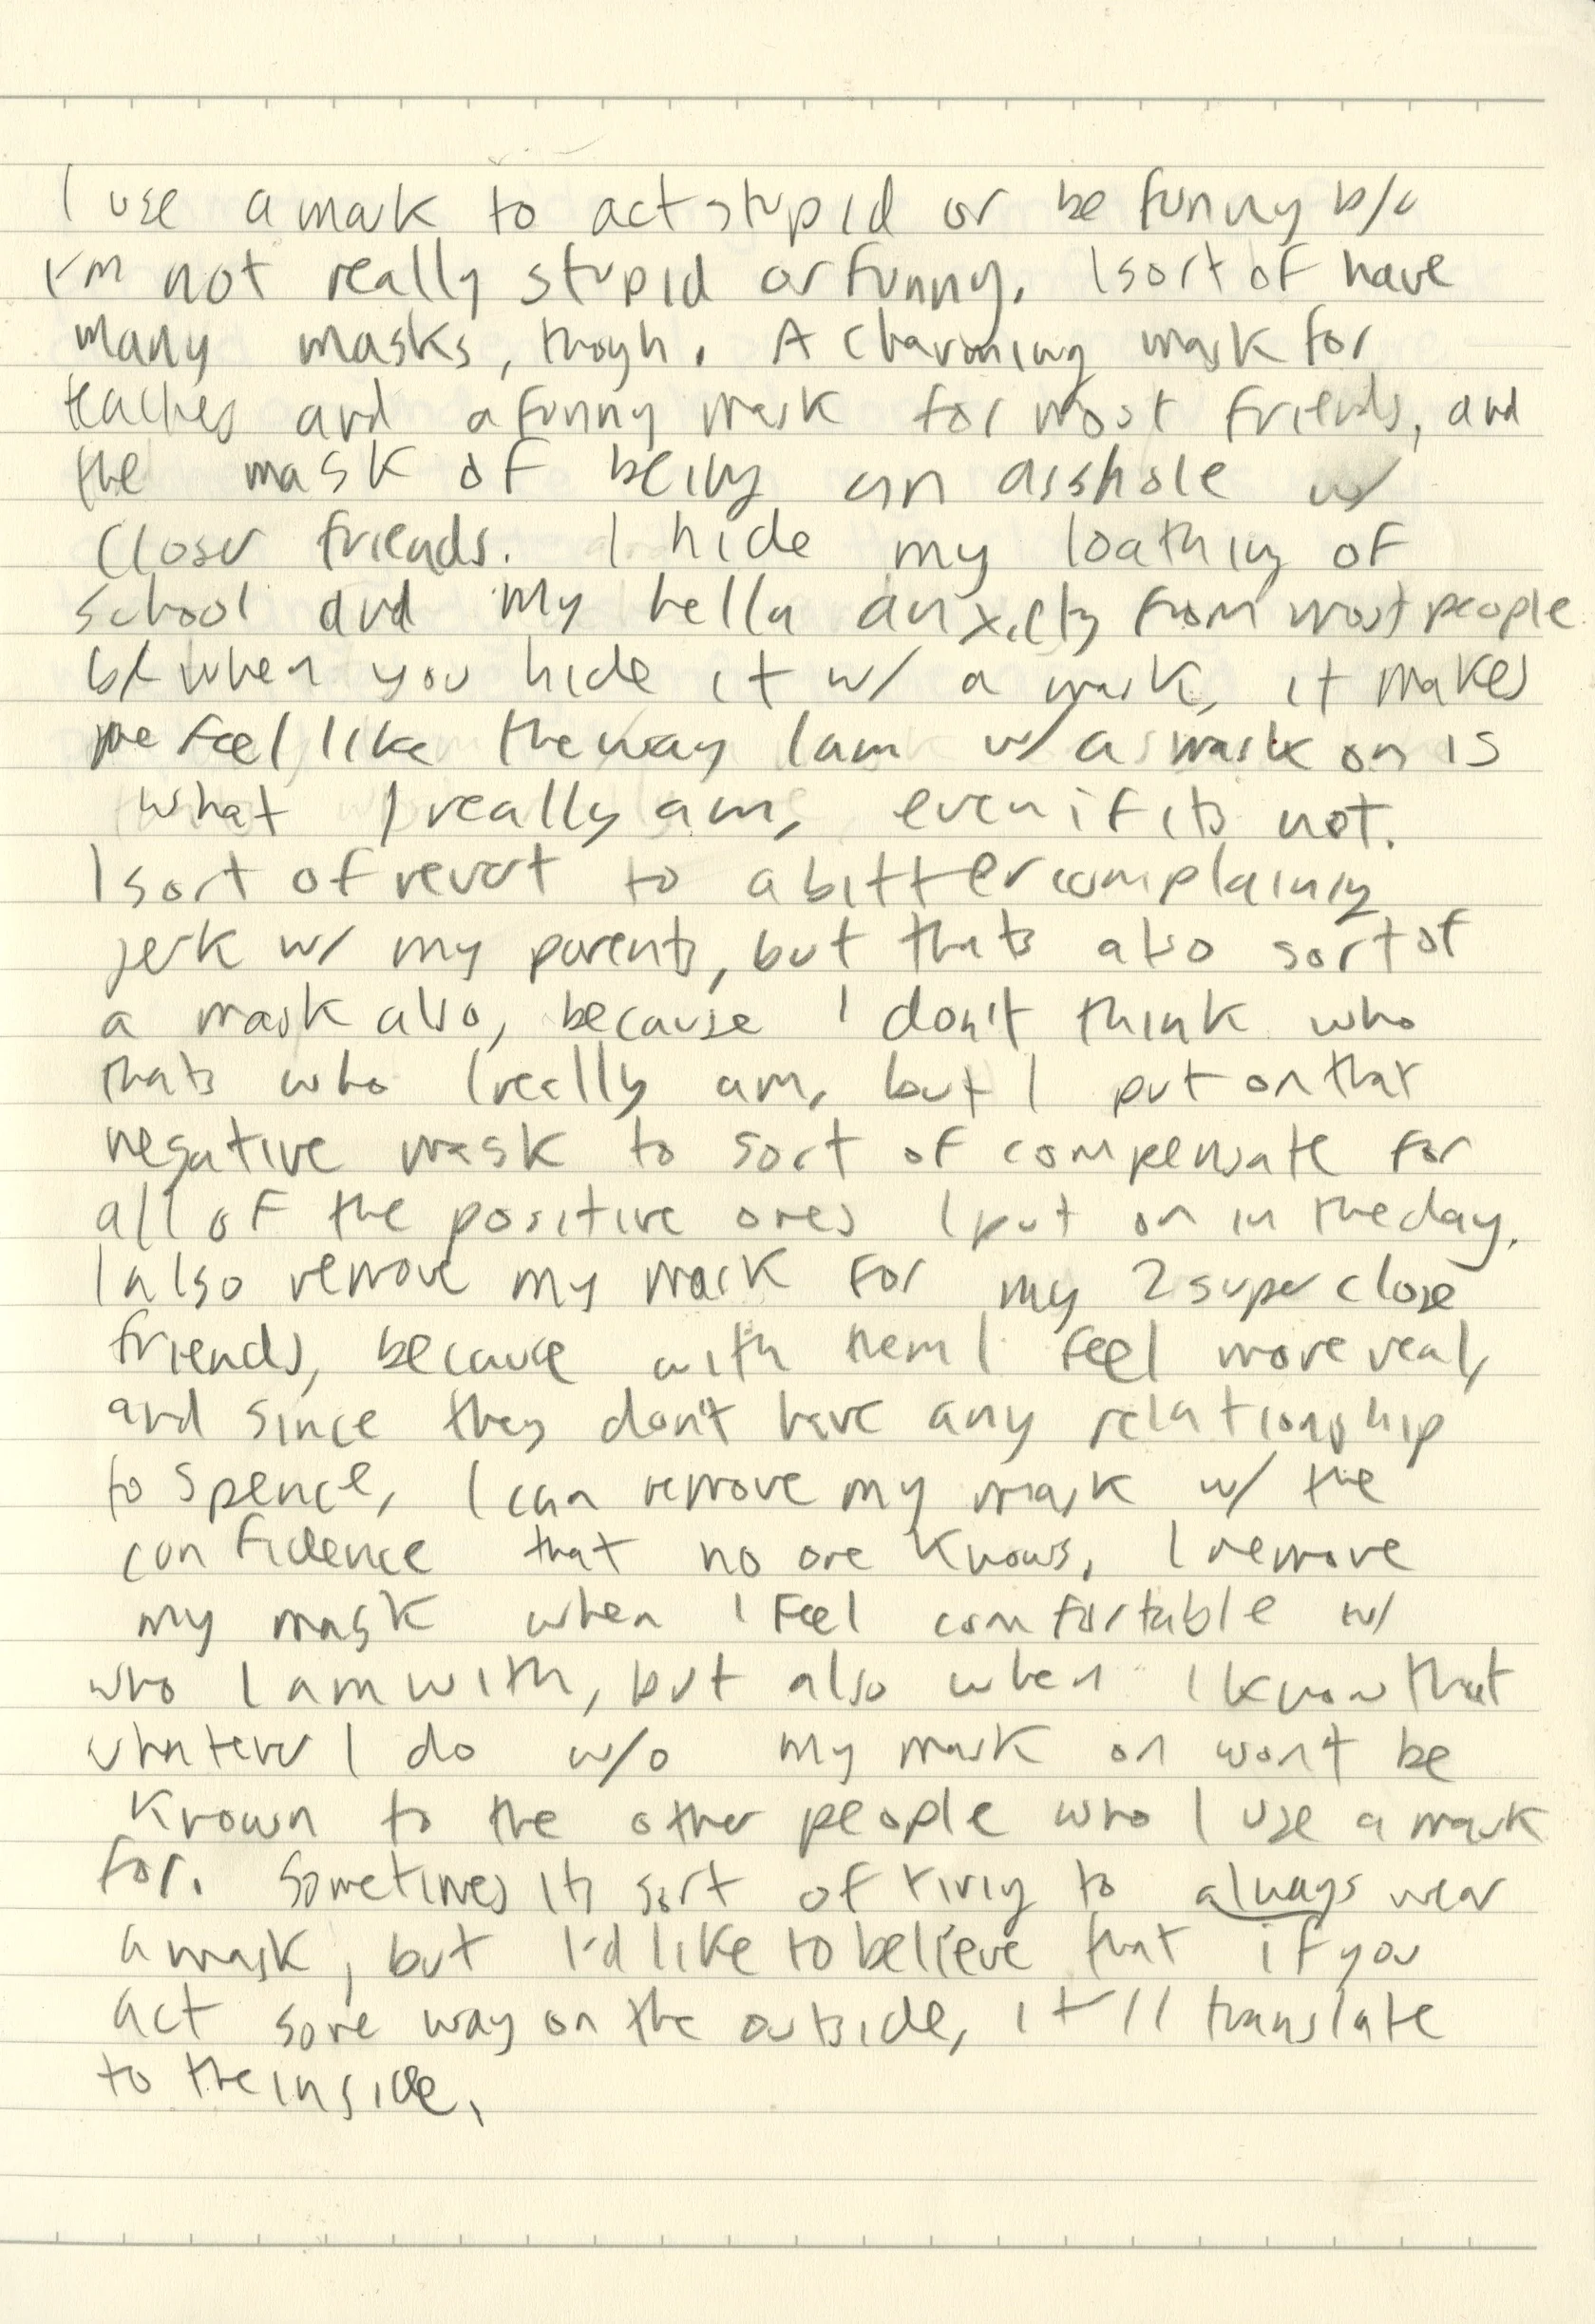 I use a mask to act stupid or be funny b/c
I'm not really stupid or funny. I sort of have
many masks, though. A charming mask for
teachers and a funny mask for most friends, and
the mask of being an asshole w/
closer friends. I hide my loathing of
school and my hella anxiety from most people
b/c when you hide it w/ a mask, it makes
me feel like the way I am w/ a mask on is
what I really am, even if its not.
I sort of revert to a bitter complaining
jerk w/ my parents, but thats also sort of
a mask also, because I don't think who
thats who I really am, but I put on that
negative mask to sort of compensate for
all of the positive ones I put on in the day.
I also remove my mask for my 2 super close
friends, because with them I feel more real,
and since they don't have any relationship
to Spence, I can remove my mask w/ the
confidence that no one knows. I remove
my mask when I feel comfortable w/
who I am with, but also when I know that
whatever I do w/o my mask on won't be
known to the other people who I use a mask
for. Sometimes its sort of tiring to always wear
a mask, but I'd like to believe that if you
act some way on the outside, it'll translate
to the inside.